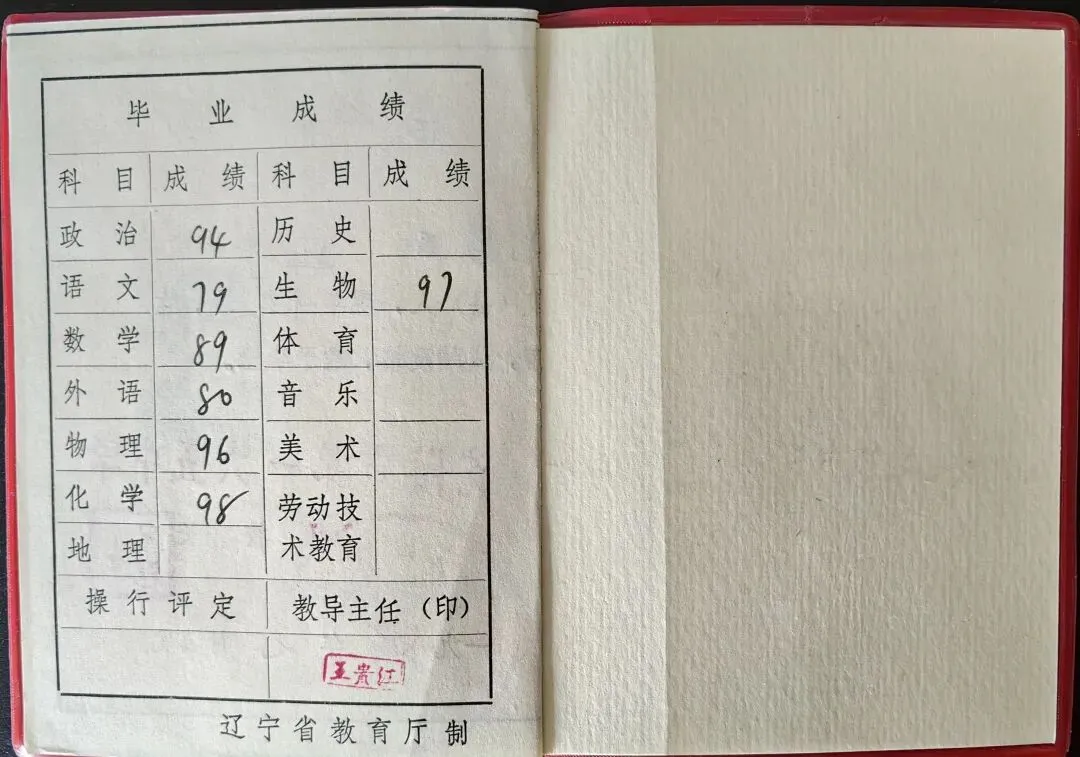 毕业成绩
科目 成绩 科目 成绩
政治 94 历史
语文 79 生物 97
数学 89 体育
外语 80 音乐
物理 96 美术
化学 98 劳动技
地理 术教育
操行评定 教导主任（印）
王贵红
辽宁省教育厅制